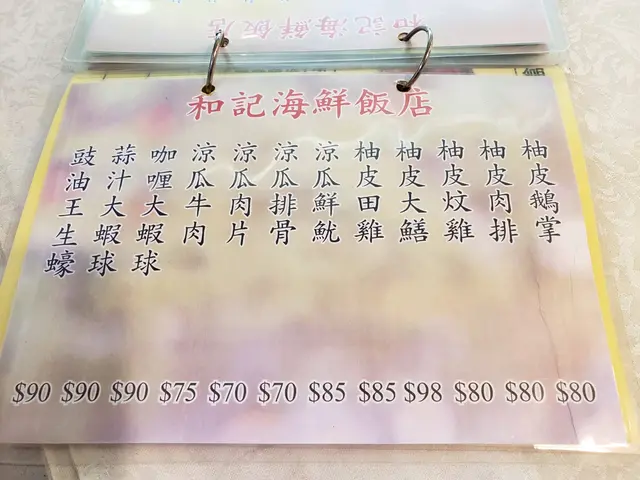 和記海鮮飯店
和記海鮮飯店
柚皮鵝掌
柚皮肉排
柚皮炆雞
柚皮大鱔
柚皮田雞
涼瓜鮮魷
涼瓜排骨
涼瓜肉片
涼瓜牛肉
咖喱大蝦球
蒜汁大蝦球
豉油王生蠔
$90 $90 $90 $75 $70 $70 $85 $85 $98 $80 $80 $80